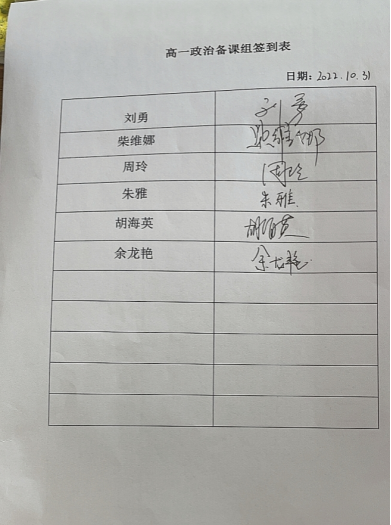 高一政治备课组签到表
日期：2022.10.31
刘勇 刘勇
柴维娜 柴维娜
周玲 周玲
朱雅 朱雅
胡海英 胡海英
余龙艳 余龙艳